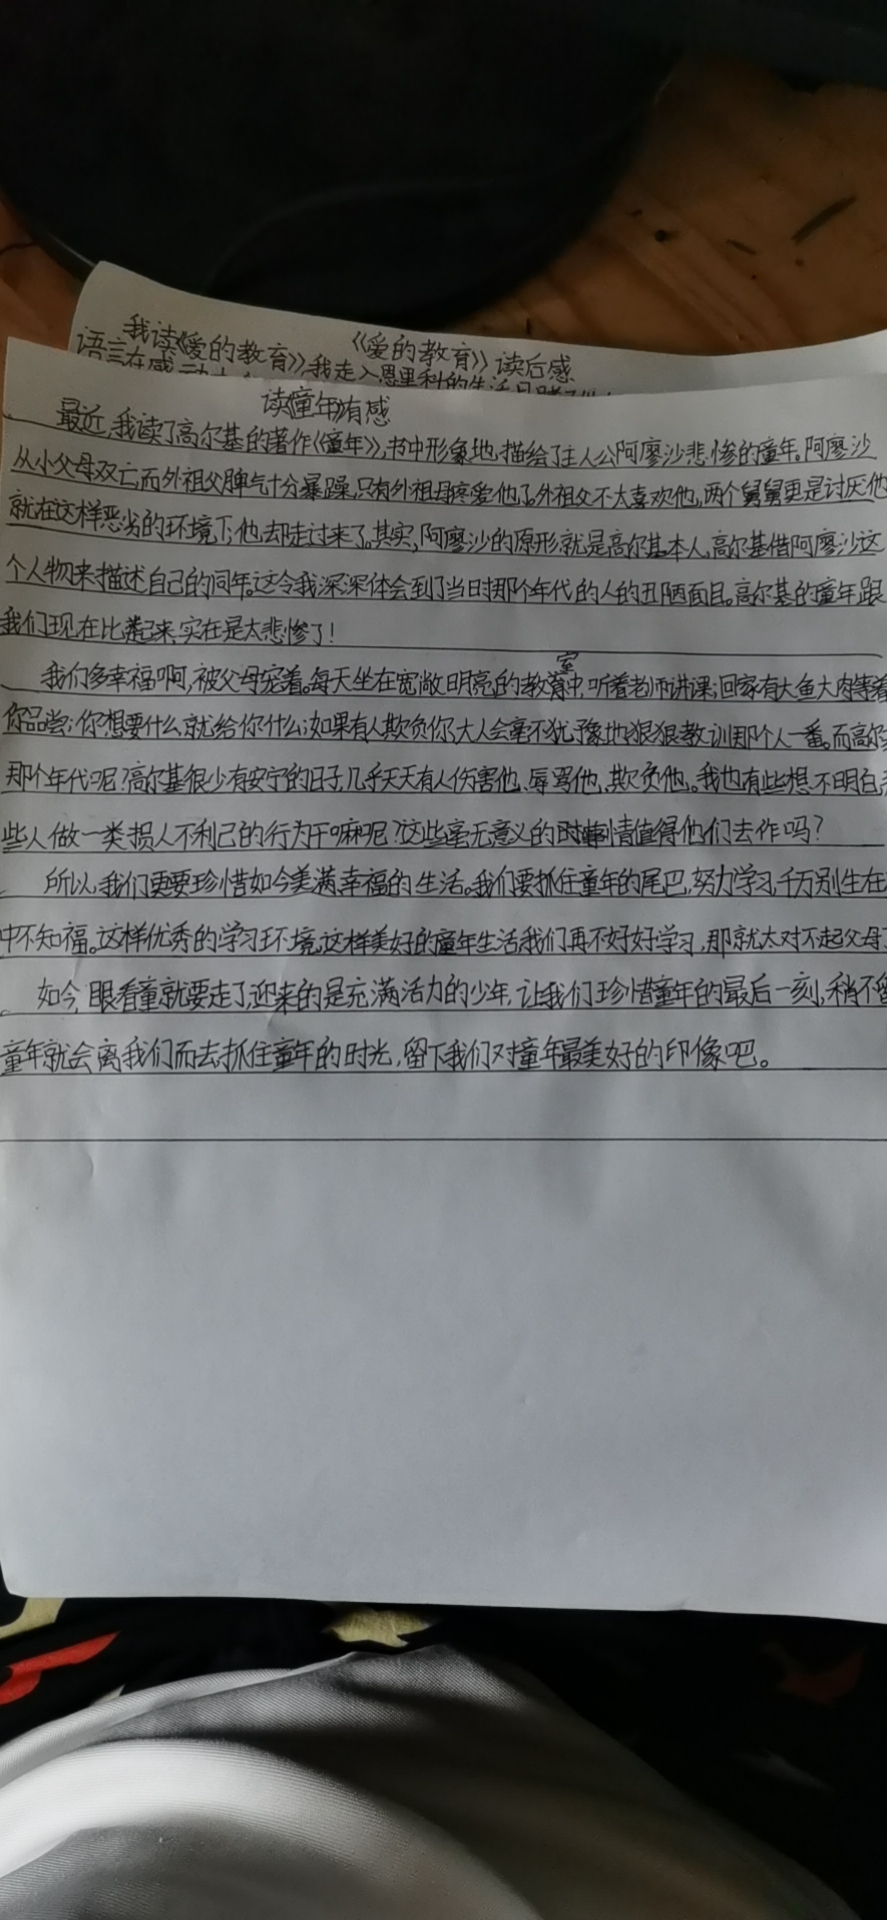 《爱的教育》读后感
我读《爱的教育》,我走入恩里科的生活
语言在感动
读《童年》有感
最近,我读了高尔基的著作《童年》,书中形象地,描绘了主人公阿廖沙悲惨的童年。阿廖沙
从小父母双亡而外祖父脾气十分暴躁,只有外祖母疼爱他了。外祖父不太喜欢他,两个舅舅更是讨厌他
就在这样恶劣的环境下,他却走过来了。其实,阿廖沙的原形就是高尔基本人,高尔基借阿廖沙这
个人物来描述自己的同年。这令我深深体会到了当时那个年代的人的丑陋面目。高尔基的童年跟
我们现在比起来,实在是太悲惨了!
我们多幸福啊,被父母宠着。每天坐在宽敞明亮的教室中,听着老师讲课;回家有大鱼大肉等着
你品尝;你想要什么,就给你什么;如果有人欺负你,大人会毫不犹予象地狠狠教训那个人一番。而高尔
那个年代呢?高尔基很少有安宁的日子,几乎天天有人伤害他、辱骂他、欺负他。我也有些想不明白,
些人做一类损人不利己的行为干嘛呢?这些毫无意义的事情值得他们去作吗?
所以,我们更要珍惜如今美满幸福的生活。我们要抓住童年的尾巴,努力学习,千万别生在
中不知福。这样优秀的学习环境,这样美好的童年生活,我们再不好好学习,那就太对不起父母
如今,眼看童就要走了,迎来的是充满活力的少年,让我们珍惜童年的最后一刻,稍不留
童年就会离我们而去,抓住童年的时光,留下我们对童年最美好的印像吧。